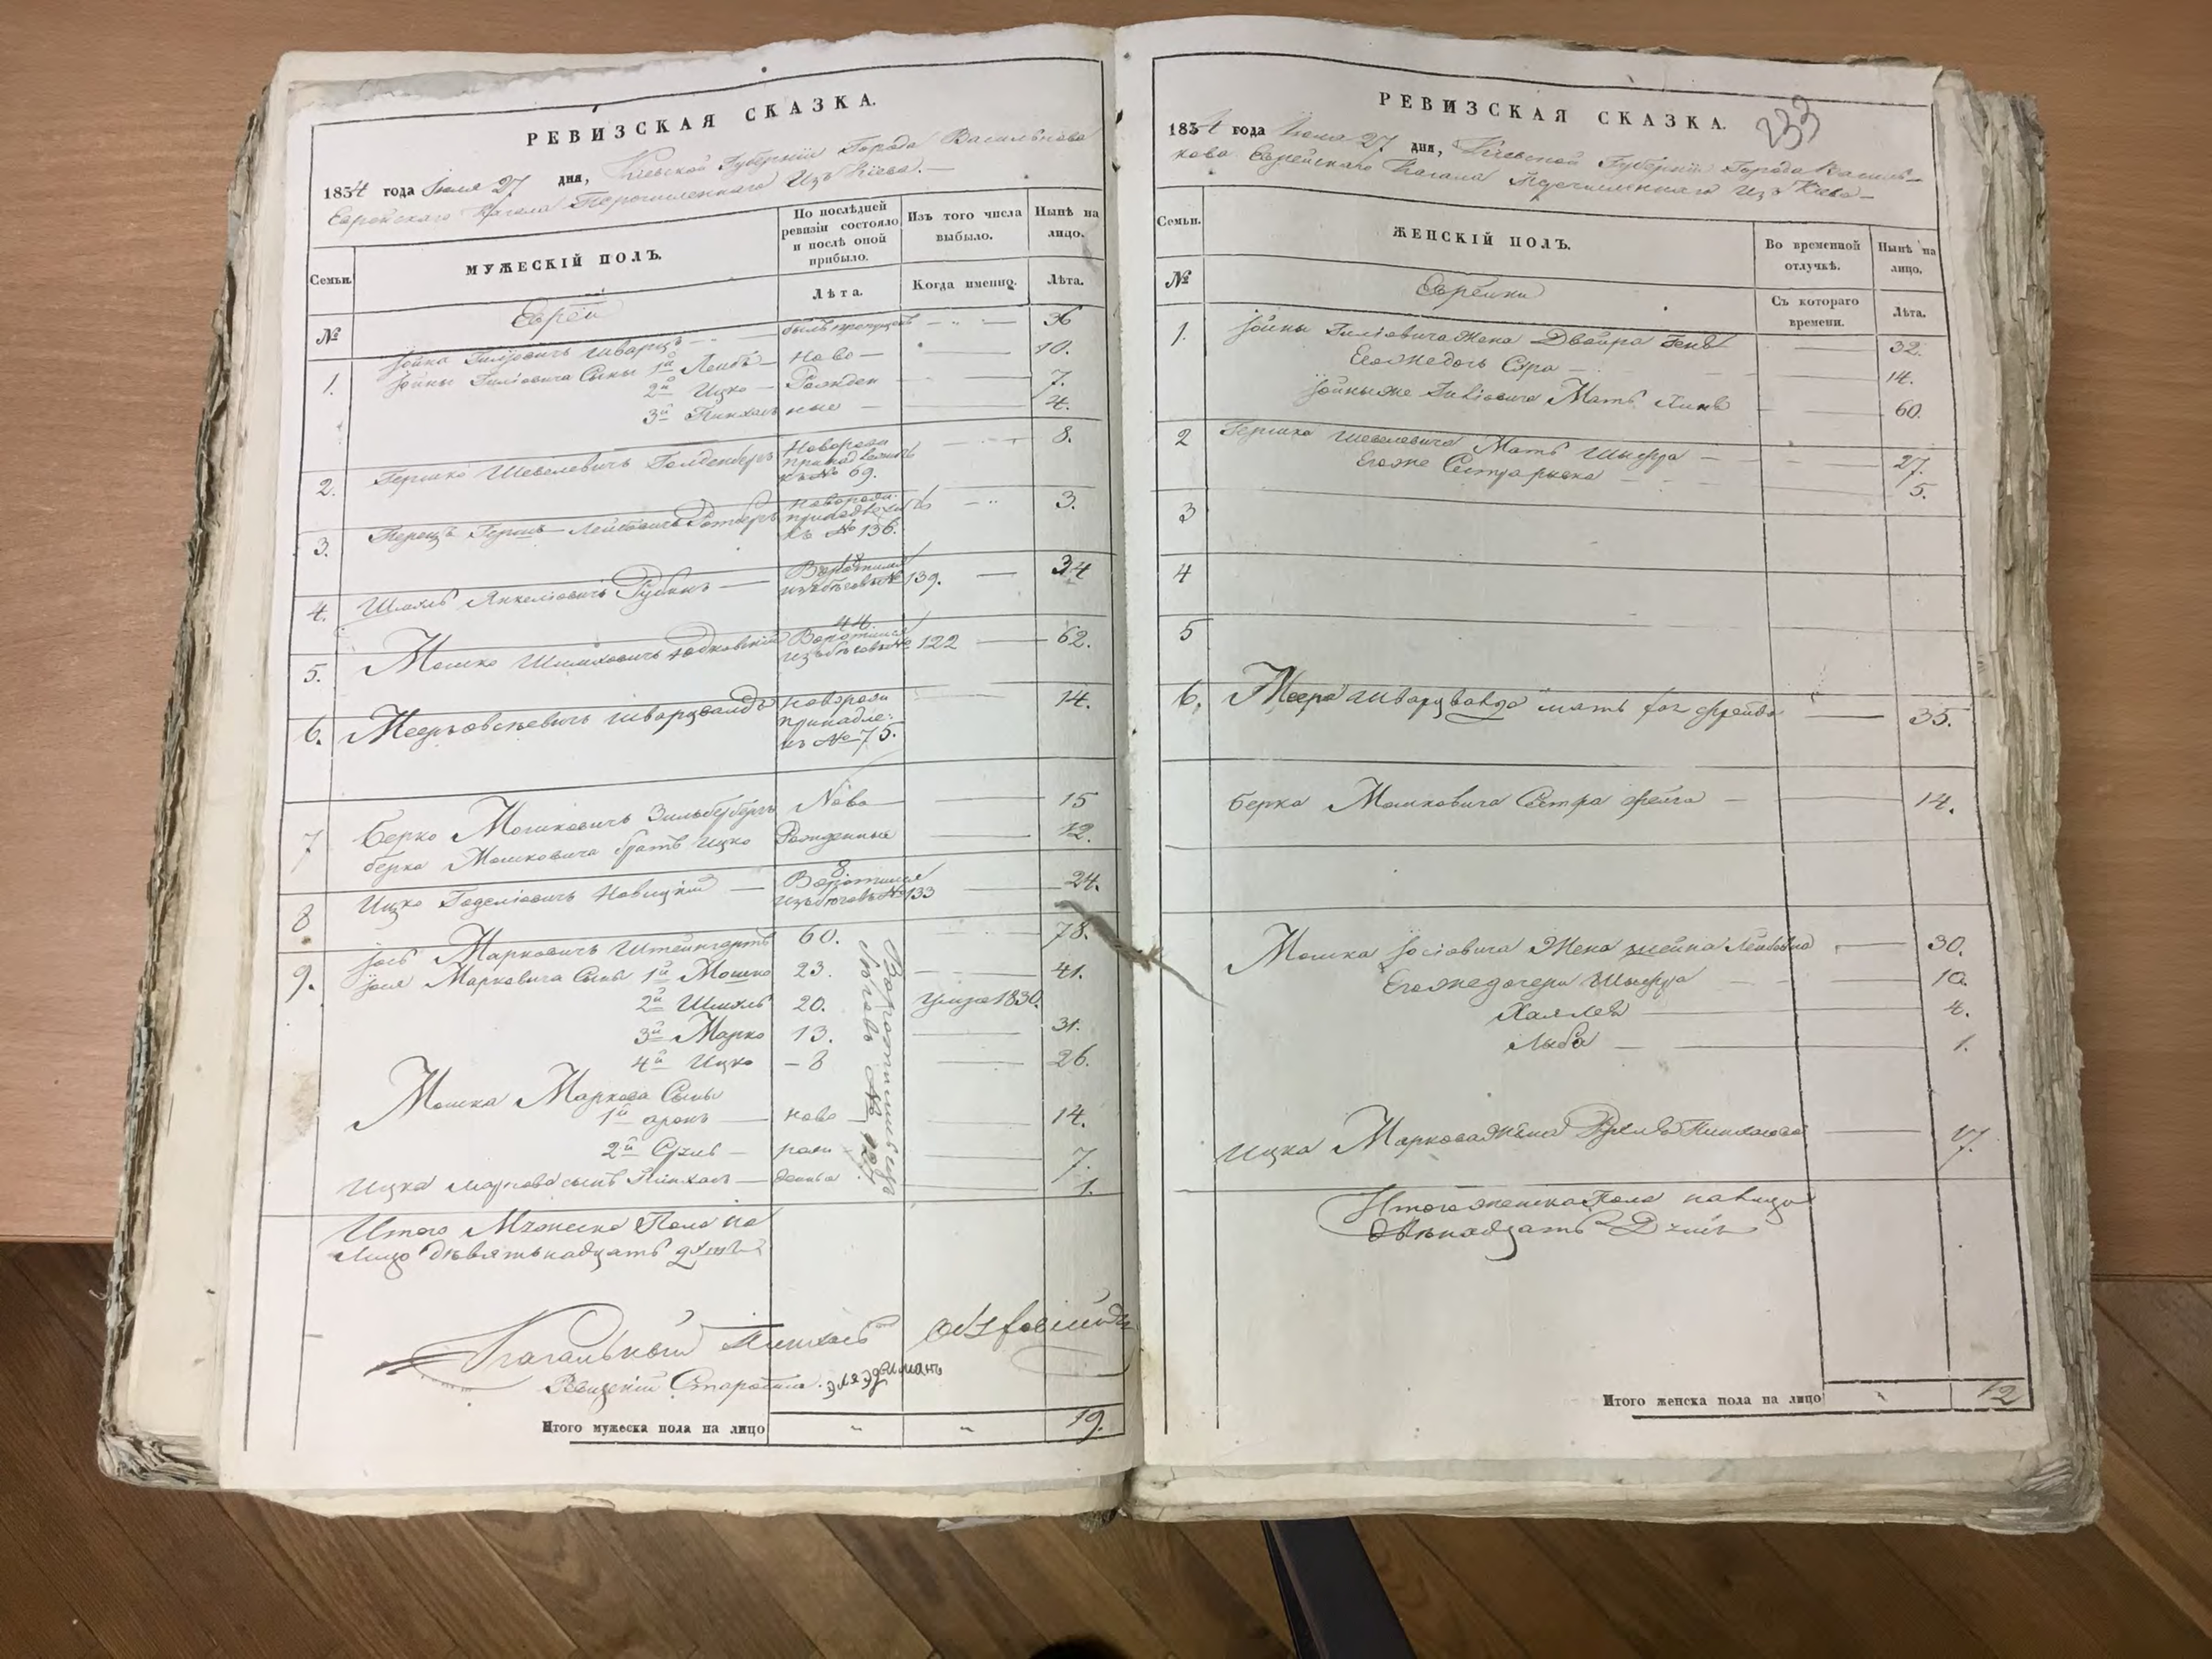 РЕВИЗСКАЯ СКАЗКА.
1834 года Июля 27 дня, Кіевской Губерніи Города Василькова
Еврейскаго Кагала Перечисленнаго Изъ Кіева.—
Семьи.
МУЖЕСКІЙ ПОЛЪ.
По послѣдней ревизіи состояло и послѣ оной прибыло.
Изъ того числа выбыло.
Нынѣ на лицо.
№
Евреи
Лѣта.
Когда именно.
Лѣта.
1. Іойна Шварцъ былъ пропущенъ 36
Іойны Сыны 1й Лейбъ — Ново — 10.
2й Ицко — Рожден 7.
3й Пинхасъ ные — 4.
2. Гершко Шевелевичъ Голденбергъ Новорожд принадлежитъ къ № 69. 8.
3. Перецъ Гершъ — Лейбовичъ Новорожд. принадлежитъ къ № 136. 3.
4. Шмуль Янкеліовичъ Рубинъ — 18 Воротился изъ бѣговъ № 139. — 34
5. Мошко 44. Воротился изъ бѣговъ № 122 — 62.
6. Мееръ Шварцвалдъ новорожд принадле: къ № 75. 14.
7 Берко Мошковичъ Зильбербергъ Ново — 15
берка Мошковича братъ Ицко Рожденные 12.
8 Ицко Новицкій — 8. Воротился изъ бѣговъ № 133 24.
9. Іось Марковичъ Штейнгартъ 60. 78.
Іося Марковича Сыны 1й Мошко 23. 41.
2й Шмуль 20. умре 1830.
3й Марко 13. 31.
4й Ицко — 8 26.
Воротились изъ бѣговъ №
Мошка Маркова Сыны
1й аронъ — ново 14.
2й Сруль — рож 7.
Ицка Маркова сынъ Пинхасъ — денные 1.
Итого Мужеска Пола на
Лицо девятьнадцать душъ
Кагальный Пинхасъ
Ревизскій Староста.
Итого мужеска пола на лицо " " 19.
РЕВИЗСКАЯ СКАЗКА. 233
1834 года Іюля 27 дня, Кіевской Губерніи Города Василь—
кова Еврейскаго Кагала Перечисленнаго Изъ Кіева—
Семьи.
ЖЕНСКІЙ ПОЛЪ.
Во временной отлучкѣ.
Нынѣ на лицо.
№
Еврейки
Съ котораго времени.
Лѣта.
1. Іойны жена Двойра 32.
Егоже дочь Сура — 14.
Іойны же Мать 60.
2 Гершка Шевелевича Мать Шифра — 27.
Егоже Сестра — 5.
3
4
5
6. Меера Шварцвалда мать Фрейда — 35.
Берка Мошковича Сестра Фейга — 14.
Мошка Іосіовича Жена Шейна Лейбовна — 30.
Егоже дочери Шифра 10.
Хая Лея — 4.
Лыба — 1.
Ицка Маркова Жена Рухля Пинхасова — 17.
Итого женска Пола на лицо
двѣнадцать Душъ
Итого женска пола на лицо 12